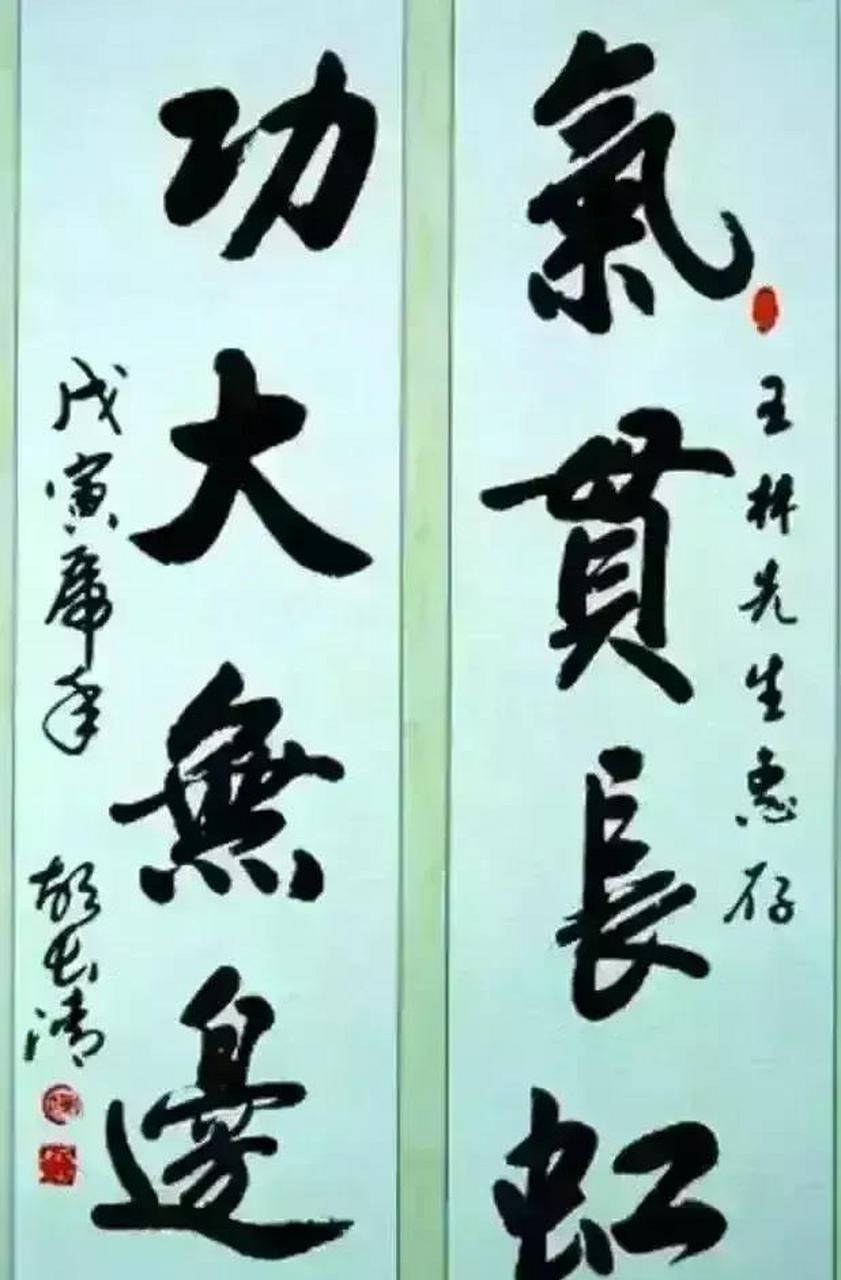 氣貫長虹
王林先生惠存
功大無邊
戊寅虎年
胡長清